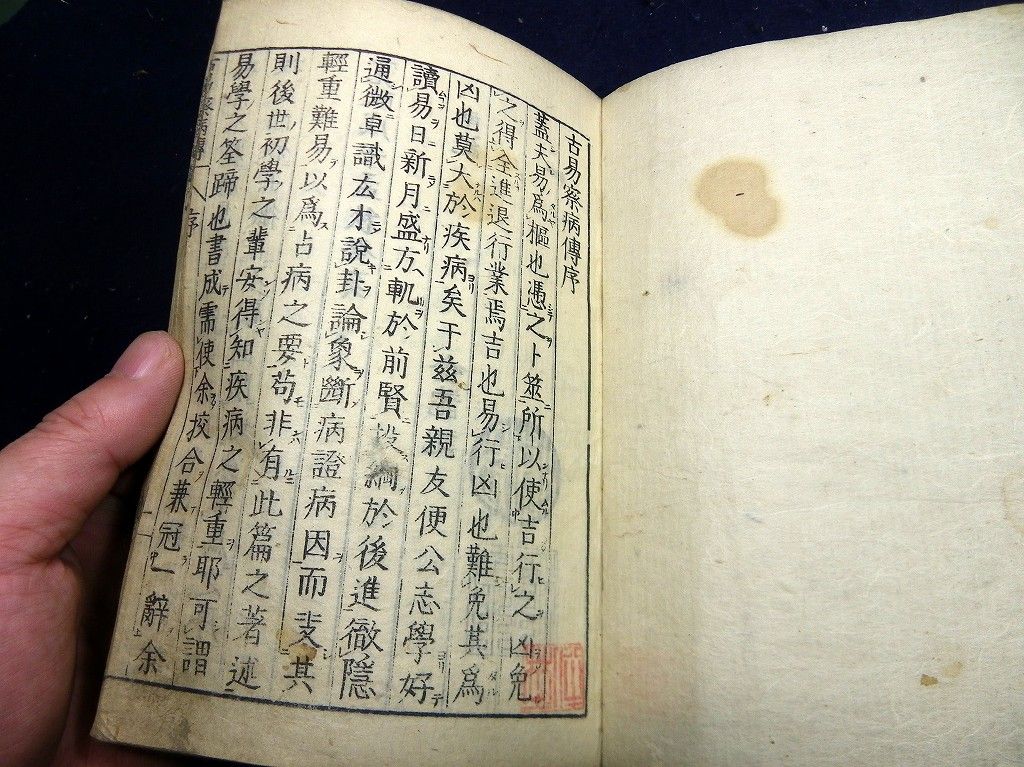 古易察病傳序
蓋夫易爲樞也憑之卜筮所以使吉行之凶免
之得全進退行業焉吉也易行凶也難免其爲
凶也莫大於疾病矣于茲吾親友便公志學好
讀易日新月盛方軌於前賢投綱於後進徹隱
通微卓識広才說卦論象斷病證病因而叏其
輕重難易以爲占病之要苟非有此篇之著述
則後世初學之輩安得知疾病之輕重耶可謂
易學之筌蹄也書成需使余挍合兼冠一辭余
古易察病傳 序 一